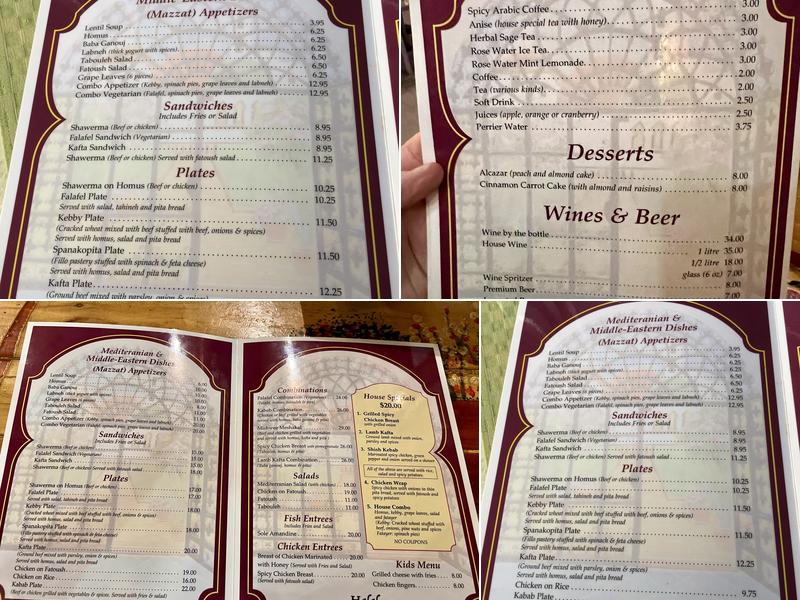 Middle-Eastern Dishes
(Mazzat) Appetizers
Lentil Soup 3.95
Homus 6.25
Baba Ganouj 6.25
Labneh (thick yogurt with spices) 6.25
Tabouleh Salad 6.50
Fatoush Salad 6.50
Grape Leaves (6 pieces) 6.25
Combo Appetizer (Kebby, spinach pies, grape leaves and labneh) 12.95
Combo Vegetarian (Falafel, spinach pies, grape leaves and labneh) 12.95
Sandwiches
Includes Fries or Salad
Shawerma (Beef or chicken) 8.95
Falafel Sandwich (Vegetarian) 8.95
Kafta Sandwich 8.95
Shawerma (Beef or chicken) Served with fatoush salad 11.25
Plates
Shawerma on Homus (Beef or chicken) 10.25
Falafel Plate 10.25
Served with salad, tahineh and pita bread
Kebby Plate 11.50
(Cracked wheat mixed with beef stuffed with beef, onions & spices)
Served with homus, salad and pita bread
Spanakopita Plate 11.50
(Fillo pastry stuffed with spinach & feta cheese)
Served with homus, salad and pita bread
Kafta Plate 12.25
(Ground beef mixed with parsley, onion & spices)
Spicy Arabic Coffee 3.00
Anise (house special tea with honey) 3.00
Herbal Sage Tea 3.00
Rose Water Ice Tea 3.00
Rose Water Mint Lemonade 3.00
Coffee 2.00
Tea (various kinds) 2.00
Soft Drink 2.50
Juices (apple, orange or cranberry) 2.50
Perrier Water 3.75
Desserts
Alcazar (peach and almond cake) 8.00
Cinnamon Carrot Cake (with almond and raisins) 8.00
Wines & Beer
Wine by the bottle 34.00
House Wine
1 litre 35.00
1/2 litre 18.00
glass (6 oz) 7.00
Wine Spritzer 8.00
Premium Beer 7.00
Mediteranian &
Middle-Eastern Dishes
(Mazzat) Appetizers
Lentil Soup
Homus
Baba Ganouj
Labneh (thick yogurt with spices)
Tabouleh Salad
Fatoush Salad
Grape Leaves (6 pieces)
Combo Appetizer (Kebby, spinach pies, grape leaves and labneh)
Combo Vegetarian (Falafel, spinach pies, grape leaves and labneh)
Sandwiches
Includes Fries or Salad
Shawerma (Beef or chicken)
Falafel Sandwich (Vegetarian)
Kafta Sandwich
Shawerma (Beef or chicken) Served with fatoush salad 18.00
Plates
Shawerma on Homus (Beef or chicken) 17.00
Falafel Plate 17.00
Served with salad, tahineh and pita bread
Kebby Plate 18.00
(Cracked wheat mixed with beef stuffed with beef, onions & spices)
Served with homus, salad and pita bread
Spanakopita Plate 18.00
(Fillo pastry stuffed with spinach & feta cheese)
Served with homus, salad and pita bread
Kafta Plate 20.00
(Ground beef mixed with parsley, onion & spices)
Served with homus, salad and pita bread
Chicken on Fatoush 19.00
Chicken on Rice 16.00
Kabab Plate 22.00
(Beef or chicken grilled with vegetables & spices. Served with fries & salad)
Combinations
Falafel Combination (Vegetarian) 24.00
Kabab Combination 26.00
Mediterranean Salad (with chicken) 18.00
Salads
Chicken on Fatoush 19.00
Fatoush 11.00
Tabouleh 11.00
Fish Entrees
Includes Fries and Salad
Sole Amandine 20.00
Chicken Entrees
Breast of Chicken Marinated 20.00
with Honey (Served with Fries and Salad)
Spicy Chicken Breast 20.00
(Served with fatoush salad)
House Specials
$20.00
1. Grilled Spicy
Chicken Breast
with grilled onion
2. Lamb Kafta
Ground lamb mixed with onion,
parsley and spices
3. Shish Kebab
Marinated spicy chicken, green
pepper and onion served on a skewer
All of the above are served with rice,
salad and spicy potatoes
4. Chicken Wrap
Spicy chicken with onions in thin
pita bread, served with fatoush and
spicy potatoes
5. House Combo
Homus, kebby, grape leaves, salad
and falafel
NO COUPONS
Kids Menu
Grilled cheese with fries 8.00
Chicken fingers 8.00
Mediteranian &
Middle-Eastern Dishes
(Mazzat) Appetizers
Lentil Soup 3.95
Homus 6.25
Baba Ganouj 6.25
Labneh (thick yogurt with spices) 6.25
Tabouleh Salad 6.50
Fatoush Salad 6.50
Grape Leaves (6 pieces) 6.25
Combo Appetizer (Kebby, spinach pies, grape leaves and labneh) 12.95
Combo Vegetarian (Falafel, spinach pies, grape leaves and labneh) 12.95
Sandwiches
Includes Fries or Salad
Shawerma (Beef or chicken) 8.95
Falafel Sandwich (Vegetarian) 8.95
Kafta Sandwich 8.95
Shawerma (Beef or chicken) Served with fatoush salad 11.25
Plates
Shawerma on Homus (Beef or chicken) 10.25
Falafel Plate 10.25
Served with salad, tahineh and pita bread
Kebby Plate 11.50
(Cracked wheat mixed with beef stuffed with beef, onions & spices)
Served with homus, salad and pita bread
Spanakopita Plate 11.50
(Fillo pastry stuffed with spinach & feta cheese)
Served with homus, salad and pita bread
Kafta Plate 12.25
(Ground beef mixed with parsley, onion & spices)
Served with homus, salad and pita bread
Chicken on Rice 9.75
Kabab Plate